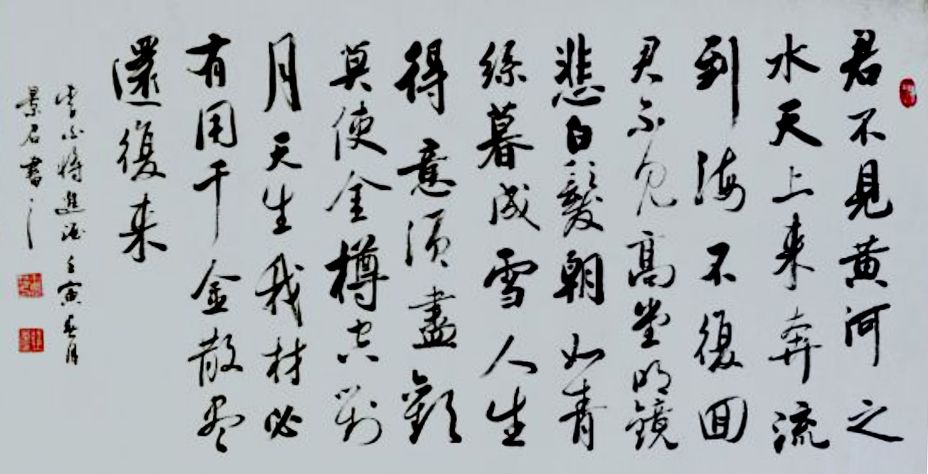 君不見黄河之
水天上来奔流
到海不復回
君不见高堂明鏡
悲白髮朝如青
絲暮成雪人生
得意须盡歡
莫使金樽空對
月天生我材必
有用千金散尽
還復来
李白將進酒壬寅春月
景石書之